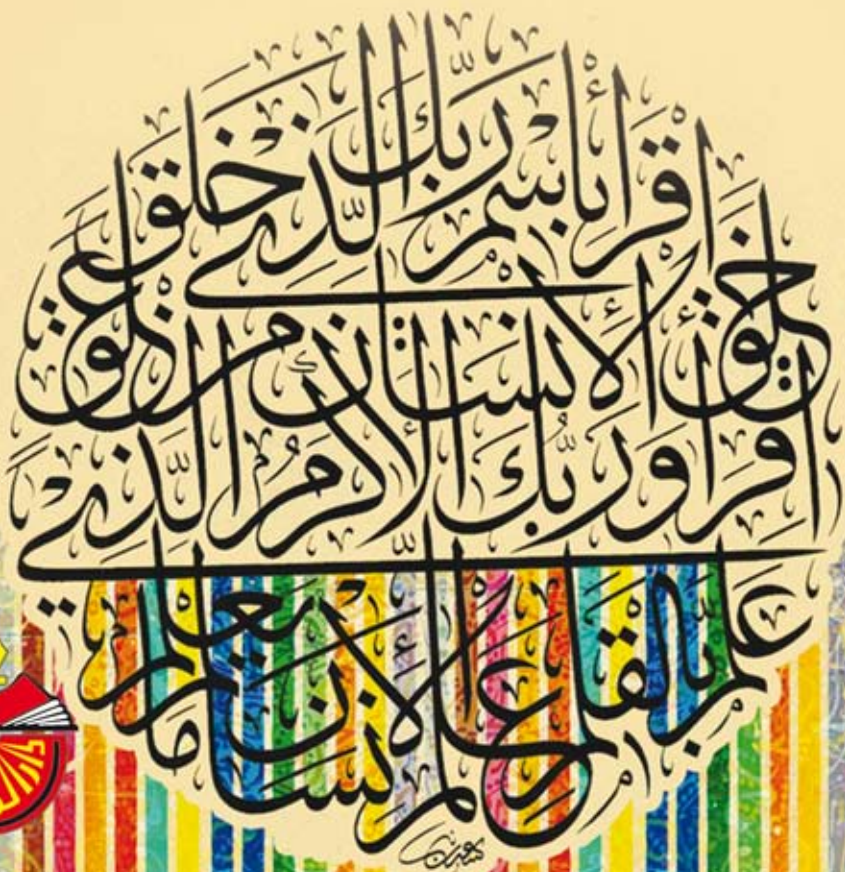 اقْرَأْ بِاسْمِ رَبِّكَ الَّذِي خَلَقَ
خَلَقَ الْإِنْسَانَ مِنْ عَلَقٍ
اقْرَأْ وَرَبُّكَ الْأَكْرَمُ الَّذِي
عَلَّمَ بِالْقَلَمِ عَلَّمَ الْإِنْسَانَ مَا لَمْ يَعْلَمْ